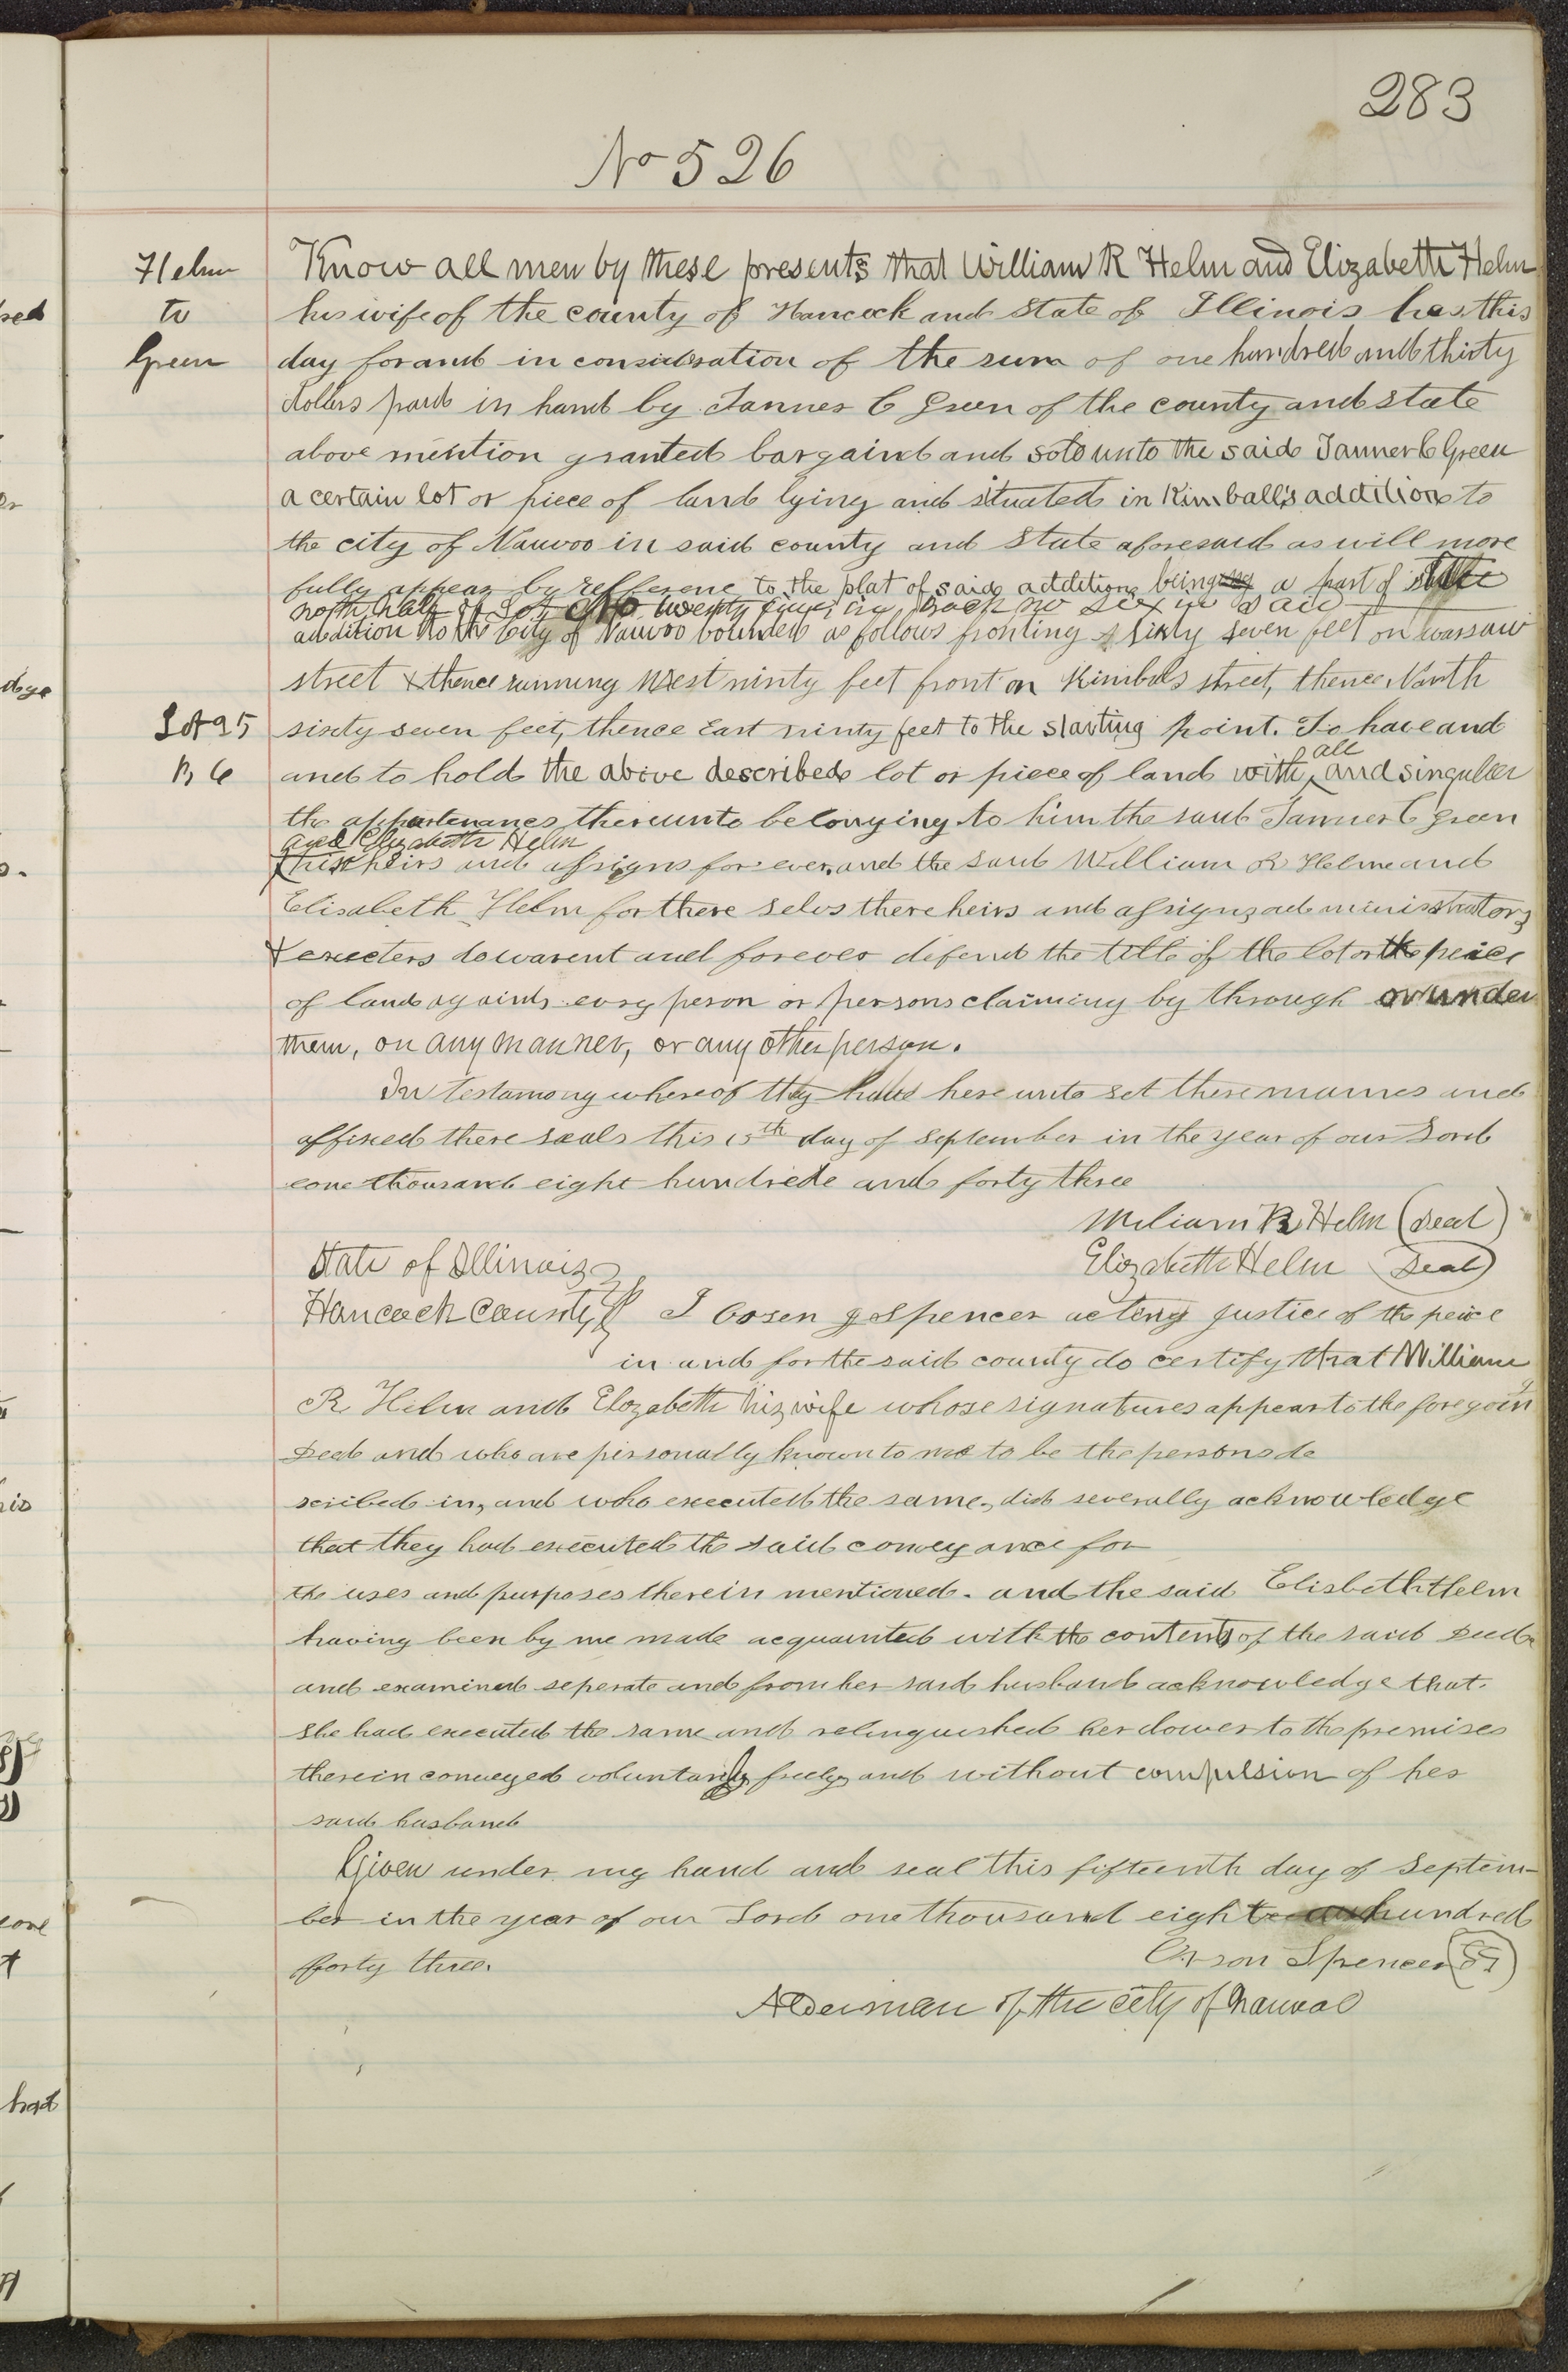 283
No 526
Helm
to
Green
Know all men by these presents that William R Helm and Elizabeth Helm
his wife of the county of Hancock and State of Illinois has this
day for and in consideration of the sum of one hundred and thirty
dollers paid in hand by Tanner C Green of the county and state
above mention granted bargaind and sold unto the said Tanner C Green
a certain lot or piece of land lying and situated in Kimball's addition to
the city of Nauvoo in said county and State aforesaid as will more
fully appear by refference to the plat of said addition being a part of
north half of Lot No twenty five in Block no six in said
addition to the City of Nauvoo bounded as follows fronting sixty seven feet on warsaw
street & thence running West ninty feet front on Kimbals street, thence North
Lot 25
B 6
sixty seven feet, thence East ninty feet to the starting point. To have and
and to hold the above described lot or piece of land with all and singuller
the appurtenances thereunto belonging to him the said Tanner C Green
and Elizabeth Helm
his heirs and assigns for ever, and the said William R Helm and
Elisabeth Helm for there selvs there heirs and assigns administrators
& executers do warent and forever defend the title of the lot or the peice
of land againts evry person or persons claiming by through or under
them, on any manner, or any other person.
In testamony whereof they have here unto set there names and
affixed there seals this 15th day of September in the year of our Lord
one thousand eight hundrede and forty three
William R Helm (Seal)
Elizabeth Helm (Seal)
State of Illinois
Hancock County I Orsen Spencer acting justice of the peice
in and for the said county do certify that William
R Helm and Elizabeth his wife whose signatures appear to the foregoing
Deed and who are personally known to me to be the persons de
scribed in, and who executed the same, did severally acknowledge
that they had executed the said conveyance for
the uses and purposes therein mentioned. and the said Elisbeth Helm
having been by me made acquainted with the contents of the said Deed
and examined seperate and from her said husband acknowledge that
she had executed the same and relinguished her dower to the premises
therein conveyed voluntarily freely and without compulsion of her
said husband
Given under my hand and seal this fifteenth day of Septem-
ber in the year of our Lord one thousand eight hundred
forty three.
Orson Spencer
Alderman of the city of Nauvoo